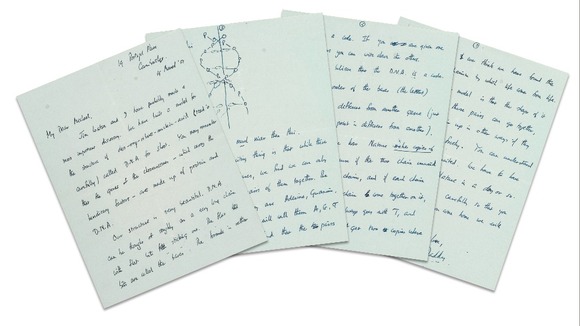 19 Portugal Place
Cambridge
19 March '53
My Dear Michael,
Jim Watson and I have probably made a
most important discovery. We have built a model for
the structure of des-oxy-ribose-nucleic-acid (read it
carefully) called D.N.A. for short. You may remember
that the genes of the chromosomes — which carry the
hereditary factors — are made up of protein and
D.N.A.
Our structure is very beautiful. D.N.A.
can be thought of roughly as a very long chain
with flat bits sticking out. The flat bits
are called the bases. The formula is rather
nicer than this.
thing is that while there
we find we can only
pairs of them together. The
are Adenine, Guanine,
will call them A, G, T
that the pairs
a code. If you are given one
you can write down the other.
believe that the D.N.A. is a code.
order of the bases (the letters)
different from another gene (just
print is different from another).
how Nature makes copies of
if the two chains unwind
chains, and if each chain
chain to come together on it,
always goes with T, and
get two copies where
we think we have found the
by which life comes from life.
model is that the shape of it
these pairs can go together,
up in other ways if they
freely. You can understand
We have to have
it in a day or so.
carefully so that you
when you come home we will